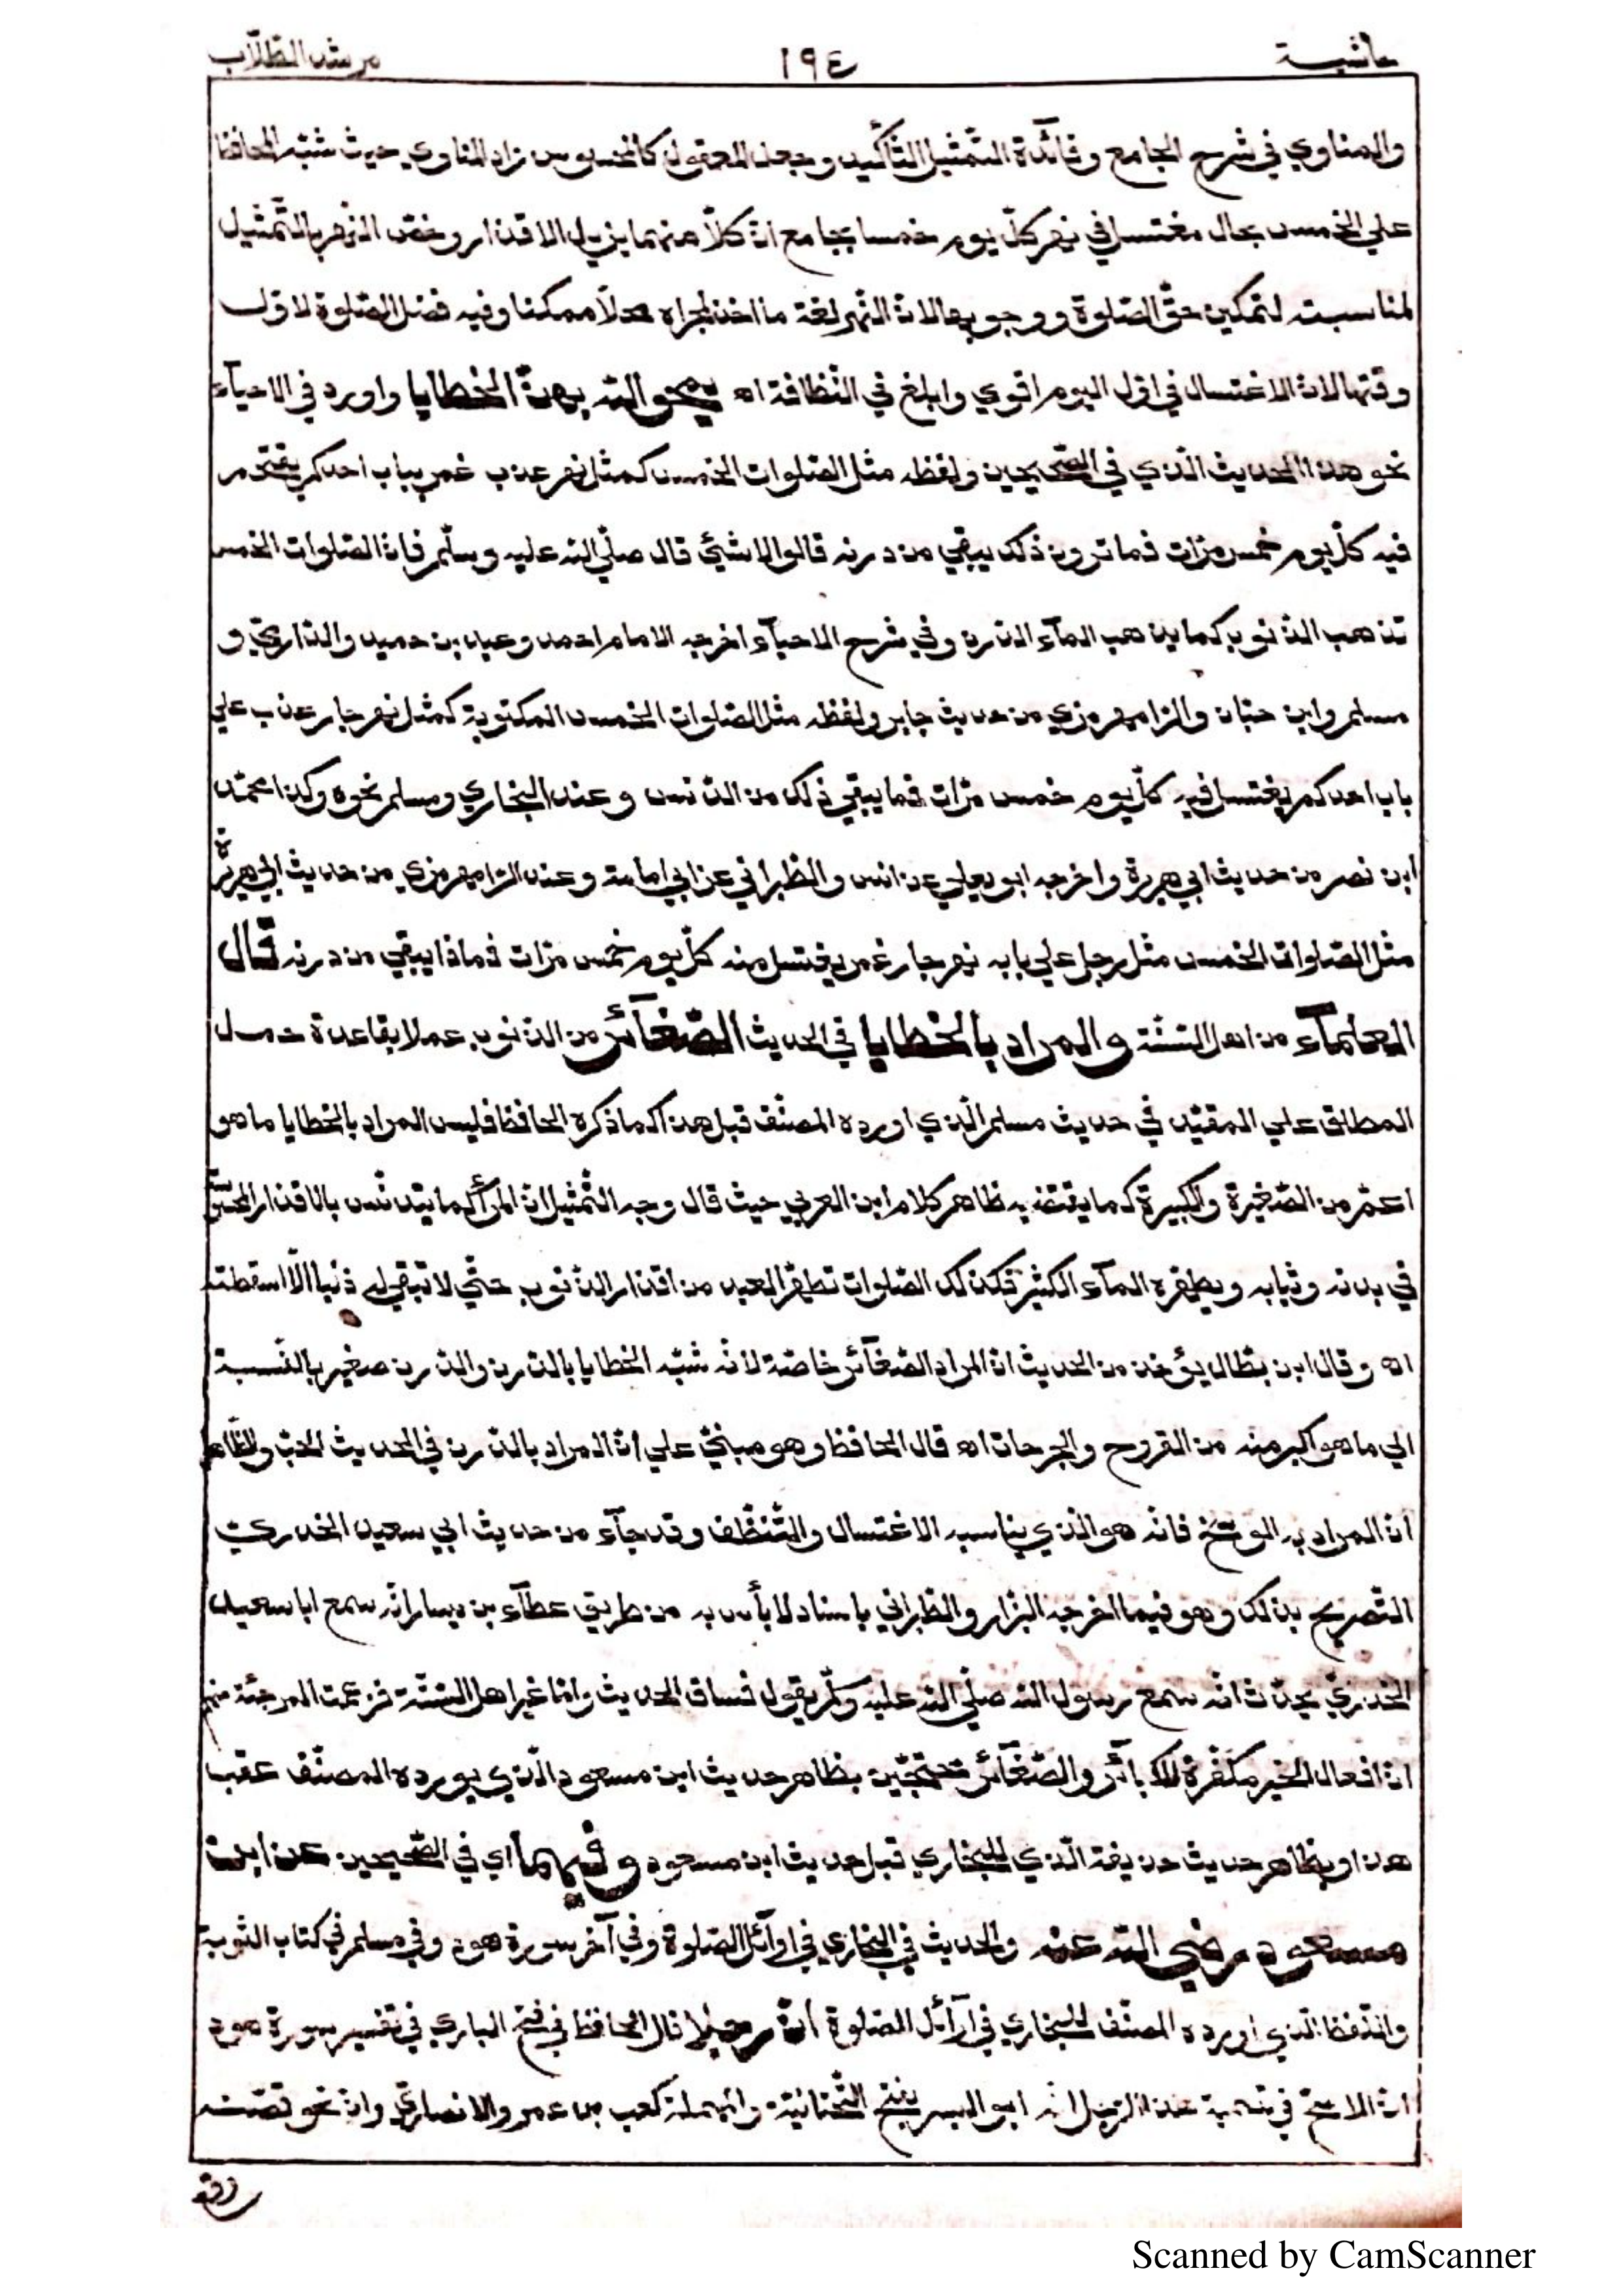 حاشية ١٩٤ مرشد الطّلّاب
والمناوي في شرح الجامع وفائدة التّمثيل التّأكيد وجعل المعقول كالمحسوس زاد المناوي حيث شبّه المحافظ
علي الخمس بحال مغتسل في نهر كلّ يوم خمسا بجامع انّ كلّا منهما يزيل الاقذار وخصّ النّهر بالتّمثيل
لمناسبته لتمكين حقّ الصّلوة ووجوبها لانّ النّهر لغة ما اخذ لمجراه محلّا ممكنا وفيه فضل الصّلوة لاوّل
وقتها لانّ الاغتسال في اوّل اليوم اقوي وابلغ في النّظافة اه يمحو الله بهنّ الخطايا واورد في الاحيآء
نحو هذا الحديث الّذي في الصّحيحين ولفظه مثل الصّلوات الخمس كمثل نهر عذب غمر بباب احدكم يقتحم
فيه كلّ يوم خمس مرّات فما ترون ذلك يبقي من درنه قالوا لا شئ قال صلّي الله عليه وسلّم فانّ الصّلوات الخمس
تذهب الذّنوب كما يذهب المآء الدّرن وفي شرح الاحيآء اخرجه الامام احمد وعبد بن حميد والدّارميّ و
مسلم وابن حبّان والرّامهرمزي من حديث جابر ولفظه مثل الصّلوات الخمس المكتوبة كمثل نهر جار عذب علي
باب احدكم يغتسل فيه كلّ يوم خمس مرّات فما يبقي ذلك من الدّنس وعند البخاري ومسلم نحوه وكذا محمّد
ابن نصر من حديث ابي هريرة واخرجه ابو يعلي عن انس والطّبراني عن ابي امامة وعند الرّامهرمزي من حديث ابي هريرة
مثل الصّلوات الخمس مثل رجل علي بابه نهر جار غمر يغتسل منه كلّ يوم خمس مرّات فماذا يبقي من درنه قال
العلمآء من اهل السّنّة والمراد بالخطايا في الحديث الصّغآئر من الذّنوب عملا بقاعدة حمل
المطلق علي المقيّد في حديث مسلم الّذي اورده المصنّف قبل هذا كما ذكره الحافظ فليس المراد بالخطايا ما هو
اعمّ من الصّغيرة والكبيرة كما يقتضيه ظاهر كلام ابن العربي حيث قال وجه التّمثيل انّ المرأ كما يتدنّس بالاقذار المحسّة
في بدنه وثيابه ويطهّره المآء الكثير فكذلك الصّلوات تطهّر العبد من اقذار الذّنوب حتّي لا تبقي له ذنبا الّا اسقطته
اه وقال ابن بطّال يؤخذ من الحديث انّ المراد الصّغآئر خاصّة لانّه شبّه الخطايا بالدّرن والدّرن صغير بالنّسبة
الي ما هو اكبر منه من القروح والجرحات اه قال الحافظ وهو مبنيّ علي انّ المراد بالدّرن في الحديث الحبّ والظّاهر
انّ المراد به الوسخ فانّه هو الّذي يناسبه الاغتسال والتّنظّف وقد جآء من حديث ابي سعيد الخدريّ
التّصريح بذلك وهو فيما اخرجه البزار والطّبراني باسناد لا بأس به من طريق عطآء بن يسار انّه سمع ابا سعيد
الخدري يحدّث انّه سمع رسول الله صلّي الله عليه وسلّم يقول فساق الحديث وامّا غير اهل السّنّة فزعمت المرجئة منهم
انّ افعال الخير مكفّرة للكبآئر والصّغآئر محتجّين بظاهر حديث ابن مسعود الّذي يورده المصنّف عقب
هذا وبظاهر حديث حذيفة الّذي للبخاري قبل حديث ابن مسعود وفيهما اي في الصّحيحين عن ابن
مسعود رضي الله عنه والحديث في البخاري في اوآئل الصّلوة وفي آخر سورة هود وفي مسلم في كتاب التّوبة
واللّفظ الّذي اورده المصنّف للبخاري في اوآئل الصّلوة انّ رجلا قال الحافظ في فتح الباري في تفسير سورة هود
انّ الاصحّ في تسمية هذا الرّجل انّه ابو اليسر بفتح التّحتانيّة والمهملة كعب بن عمرو الانصاريّ وانّ نحو قصّته
Scanned by CamScanner